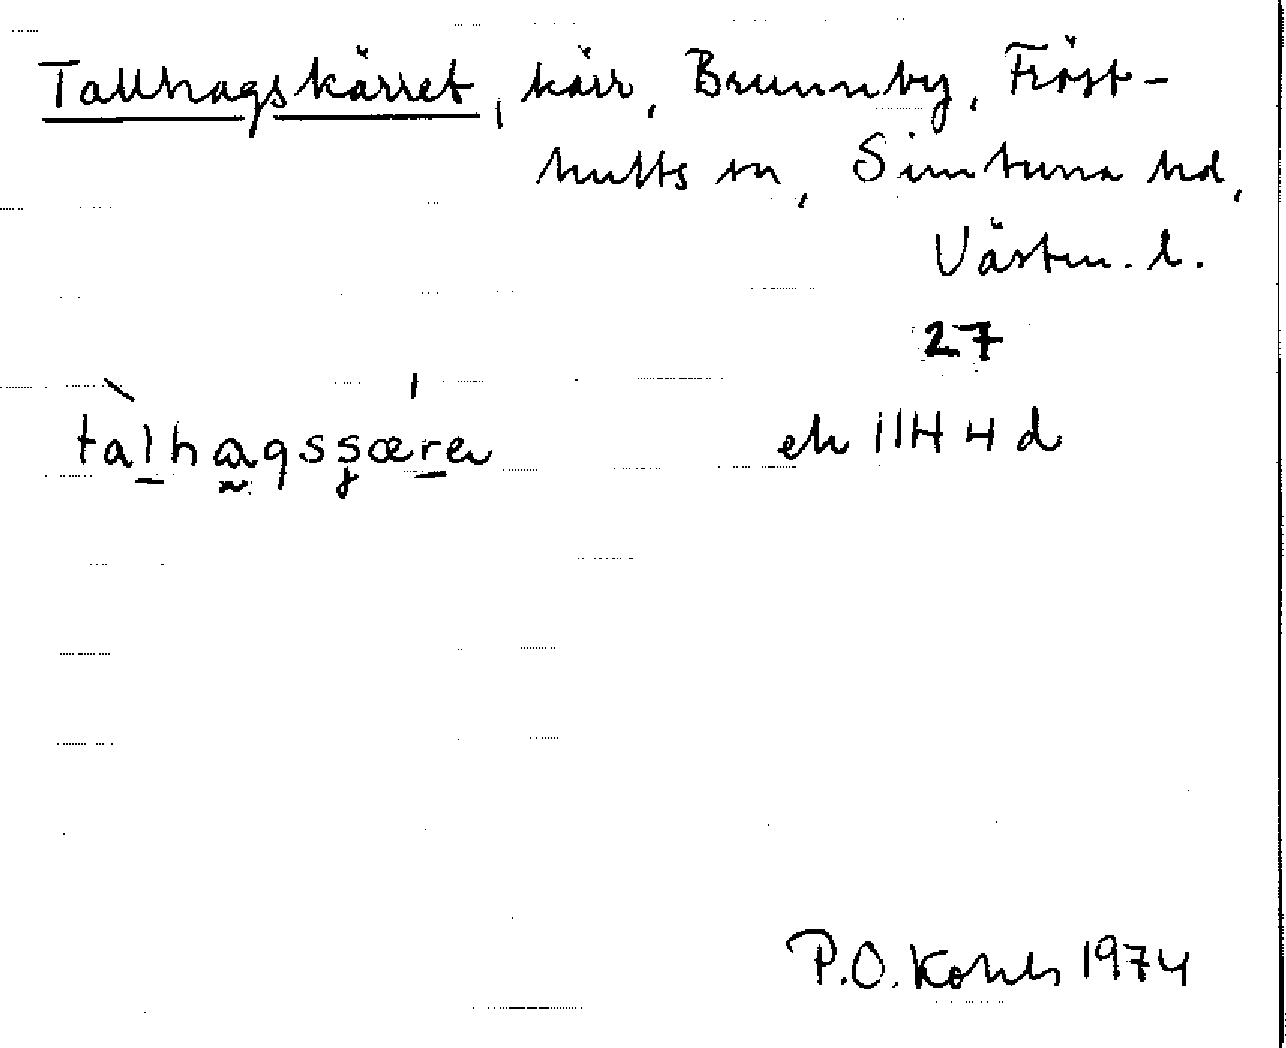 Tallhagskärret, kärr, Brunnby, Fröst-
hults sn, Simtuna hd,
Västm. l.
27
tàlhagsşæ'ren
ek 11H 4 d
P.O. 1974